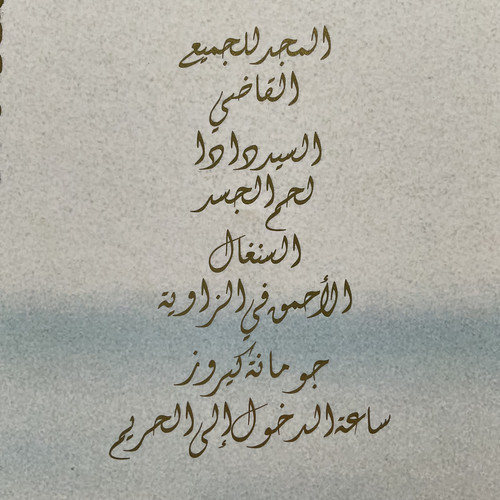 المجد للجميع
القاضي
السيد دادا
لحم الجسد
السنغال
الأحمق في الزاوية
جومانة كيروز
ساعة الدخول إلى الحريم